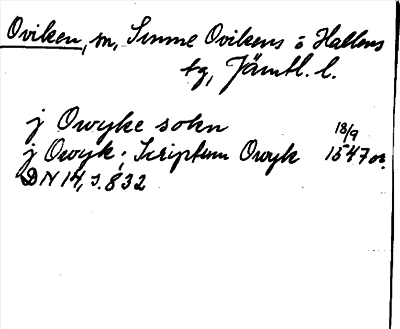 Oviken, sn, Sunne Ovikens o Hallens
tg, Jämtl. l.
j Owyke sokn
j Owyk; Scriptum Owyk 18/9 1547 or.
DN 14, s. 832